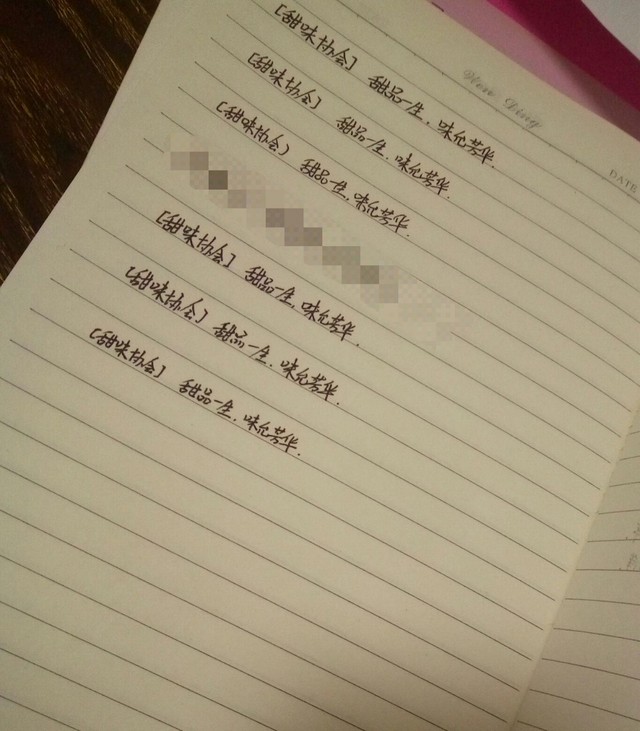 [甜味协会] 甜品一生,味允芳华.
[甜味协会] 甜品一生,味允芳华.
[甜味协会] 甜品一生,味允芳华.
[甜味协会] 甜品一生,味允芳华.
[甜味协会] 甜品一生,味允芳华.
[甜味协会] 甜品一生,味允芳华.
DATE